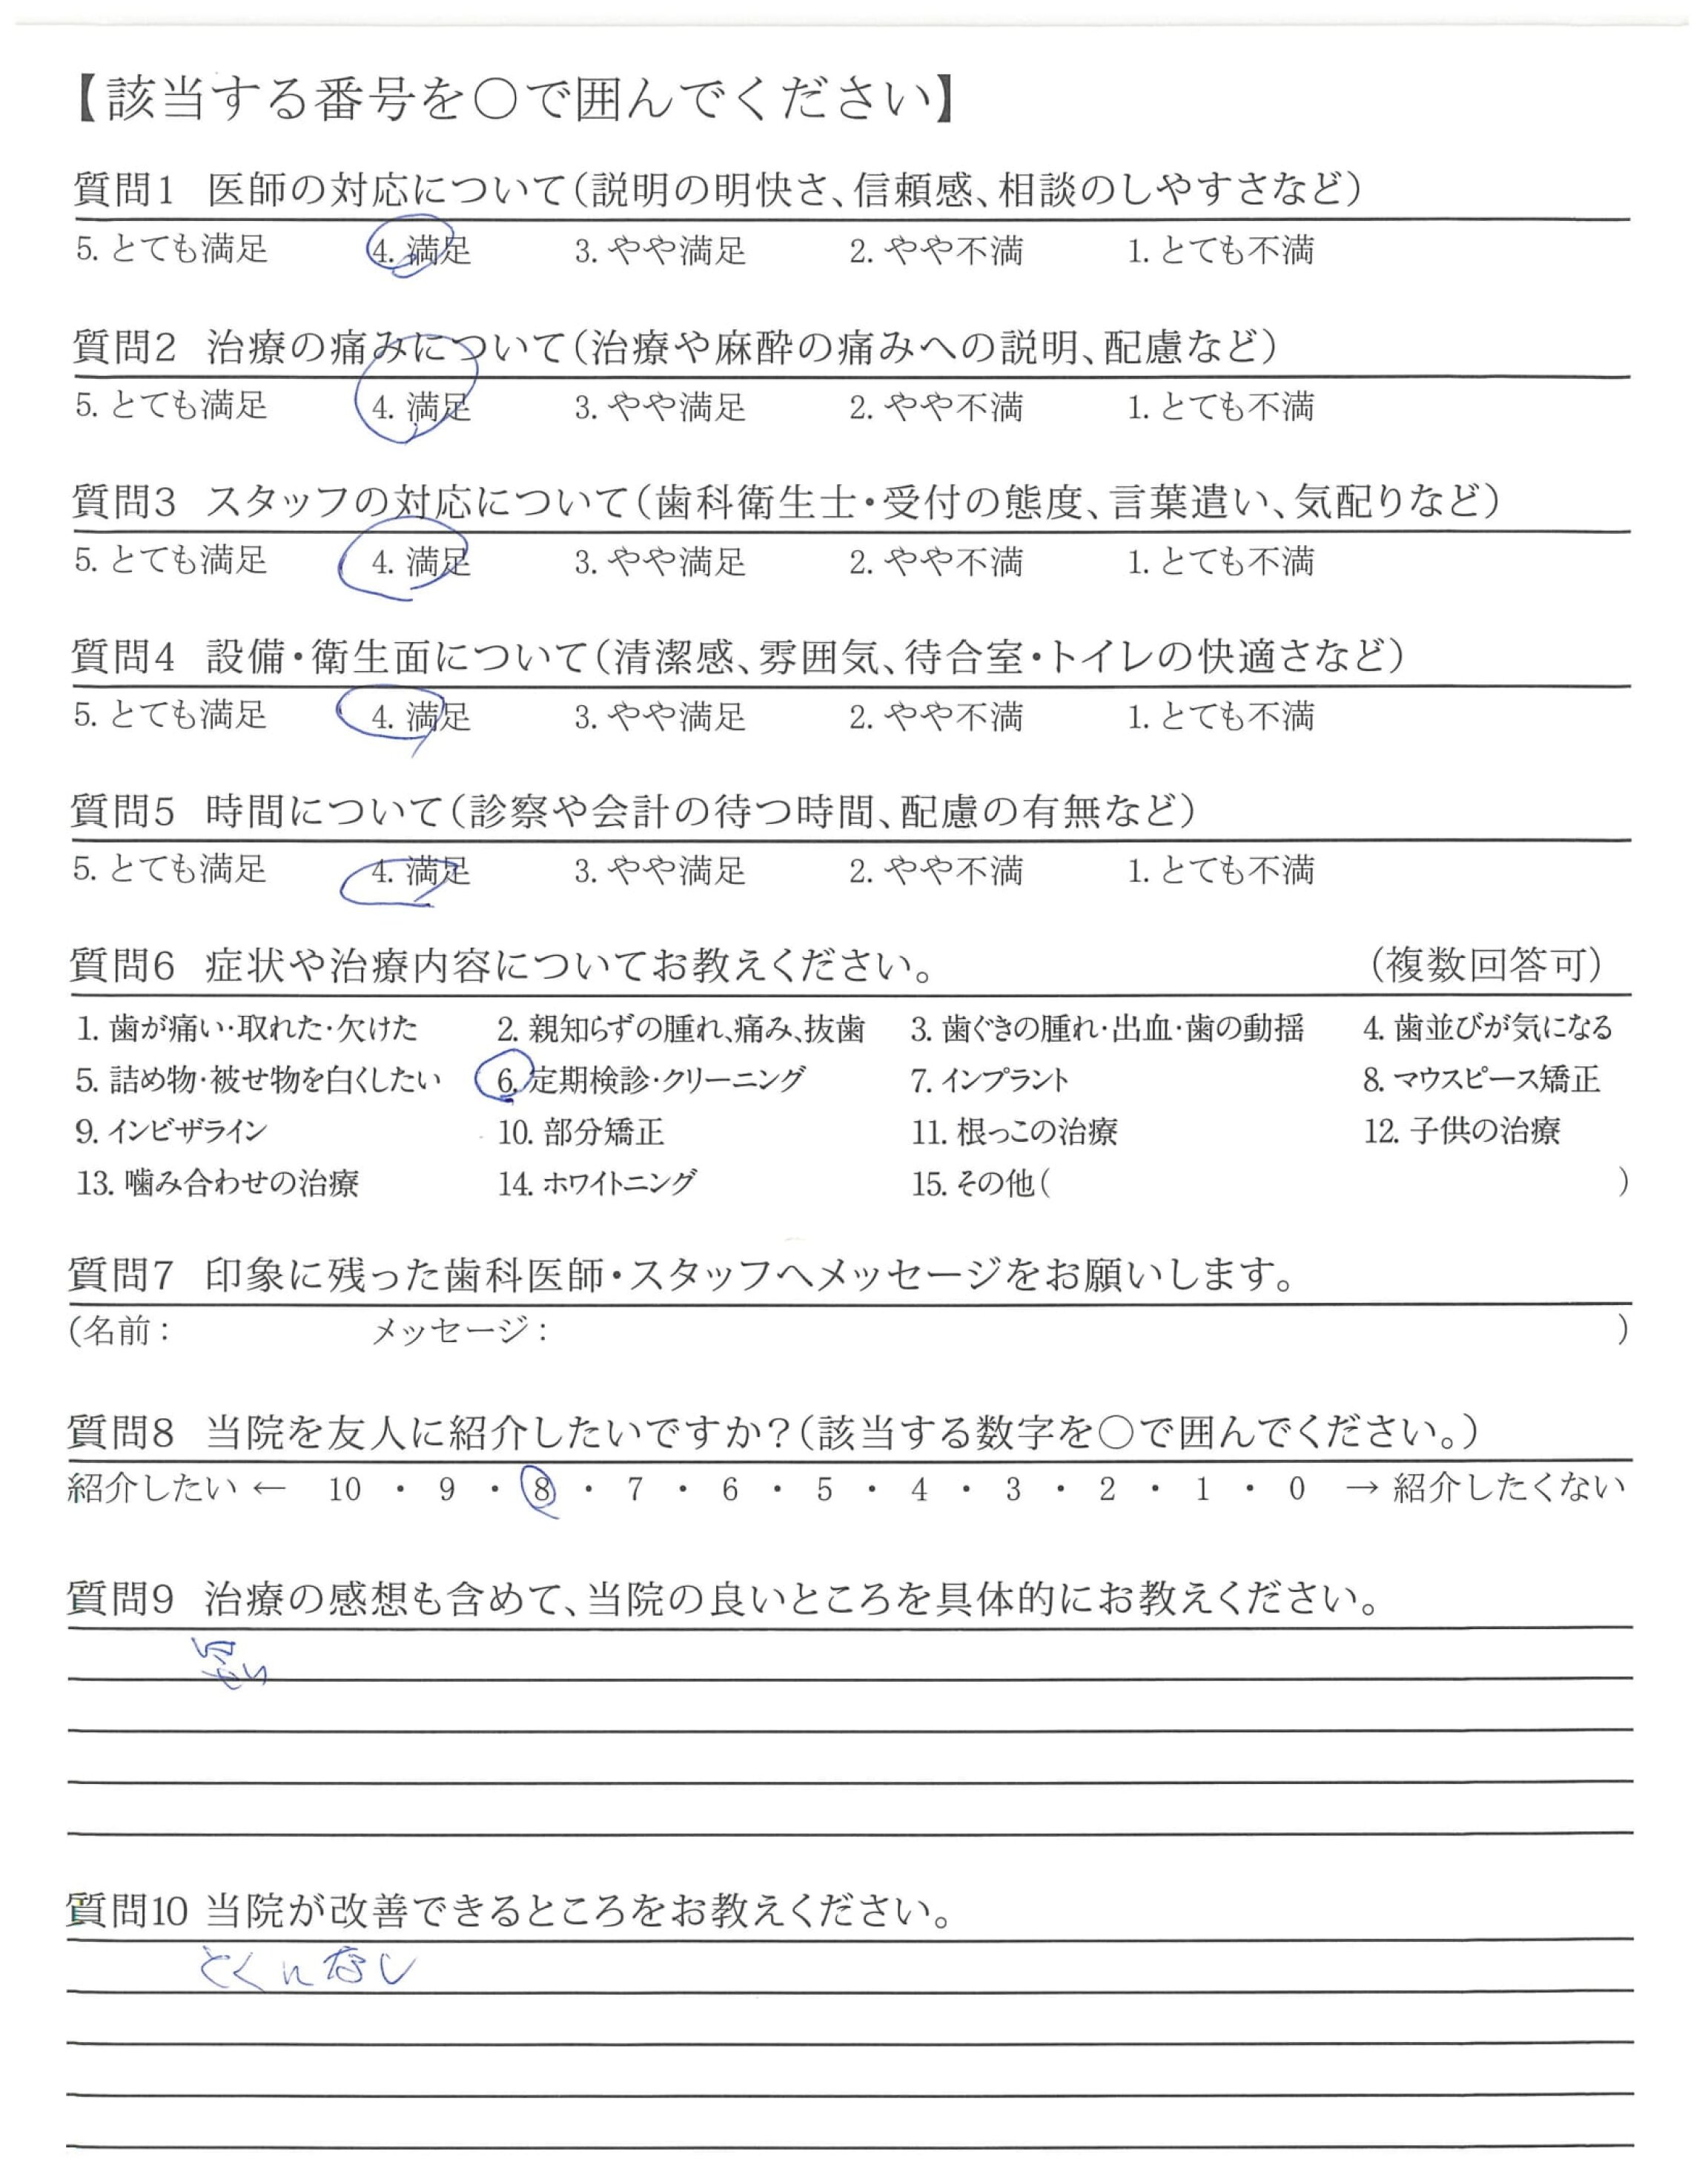 【該当する番号を○で囲んでください】
質問1 医師の対応について(説明の明快さ、信頼感、相談のしやすさなど)
5. とても満足 4. 満足 3. やや満足 2. やや不満 1. とても不満
質問2 治療の痛みについて(治療や麻酔の痛みへの説明、配慮など)
5. とても満足 4. 満足 3. やや満足 2. やや不満 1. とても不満
質問3 スタッフの対応について(歯科衛生士・受付の態度、言葉遣い、気配りなど)
5. とても満足 4. 満足 3. やや満足 2. やや不満 1. とても不満
質問4 設備・衛生面について(清潔感、雰囲気、待合室・トイレの快適さなど)
5. とても満足 4. 満足 3. やや満足 2. やや不満 1. とても不満
質問5 時間について(診察や会計の待つ時間、配慮の有無など)
5. とても満足 4. 満足 3. やや満足 2. やや不満 1. とても不満
質問6 症状や治療内容についてお教えください。 (複数回答可)
1. 歯が痛い・取れた・欠けた 2. 親知らずの腫れ、痛み、抜歯 3. 歯ぐきの腫れ・出血・歯の動揺 4. 歯並びが気になる
5. 詰め物・被せ物を白くしたい 6. 定期検診・クリーニング 7. インプラント 8. マウスピース矯正
9. インビザライン 10. 部分矯正 11. 根っこの治療 12. 子供の治療
13. 噛み合わせの治療 14. ホワイトニング 15. その他( )
質問7 印象に残った歯科医師・スタッフへメッセージをお願いします。
(名前: メッセージ: )
質問8 当院を友人に紹介したいですか?(該当する数字を○で囲んでください。)
紹介したい ← 10 ・ 9 ・ 8 ・ 7 ・ 6 ・ 5 ・ 4 ・ 3 ・ 2 ・ 1 ・ 0 → 紹介したくない
質問9 治療の感想も含めて、当院の良いところを具体的にお教えください。
質問10 当院が改善できるところをお教えください。
とくになし